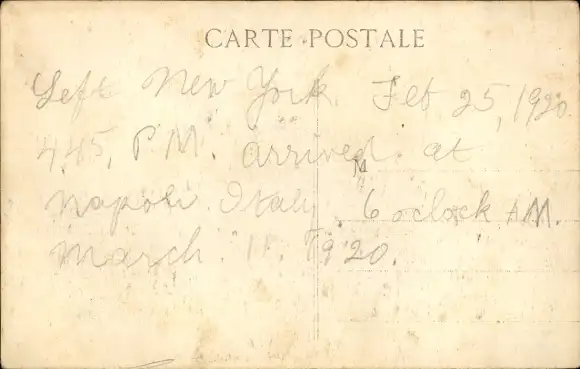 CARTE POSTALE
Left New York. Feb 25, 1920.
4.45, P.M. arrived. at
M
Napoli. Italy. 6 oclock A.M.
March. 11. 1920.